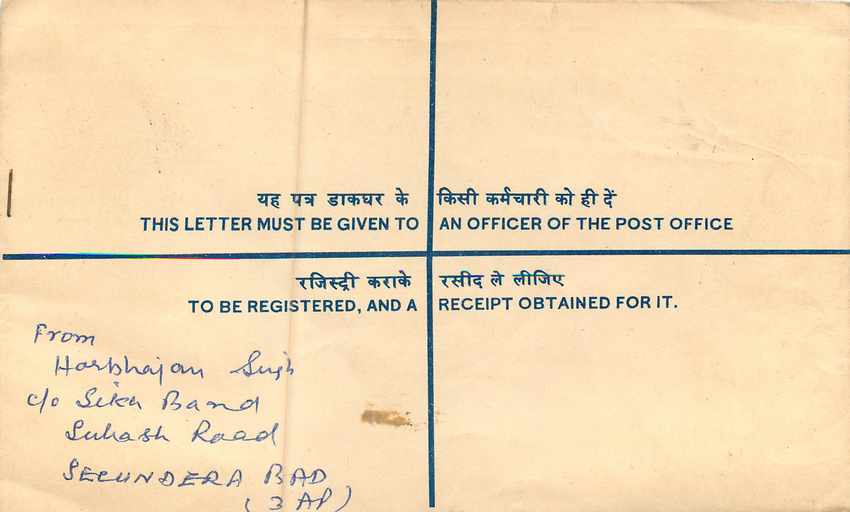 यह पत्र डाकघर के किसी कर्मचारी को ही दें
THIS LETTER MUST BE GIVEN TO AN OFFICER OF THE POST OFFICE
रजिस्ट्री कराके रसीद ले लीजिए
TO BE REGISTERED, AND A RECEIPT OBTAINED FOR IT.
From
Harbhajan Singh
c/o Sikh Band
Subash Road
SECUNDERA BAD
(3 AP)